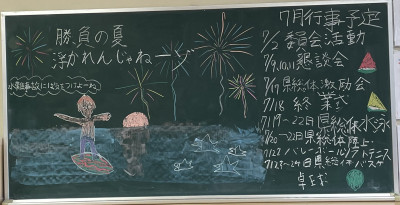 勝負の夏
浮かれんじゃねーゾ
水難事故には気をつけよーね
7月行事予定
7/2 委員会活動
7/9,10,11 懇談会
7/17 県総体激励会
7/18 終業式
7/19〜22日県総体水泳
7/20〜22日県総体陸上
7/22 バレーボール ソフトテニス
7/23〜24日県総体バスケ
卓球